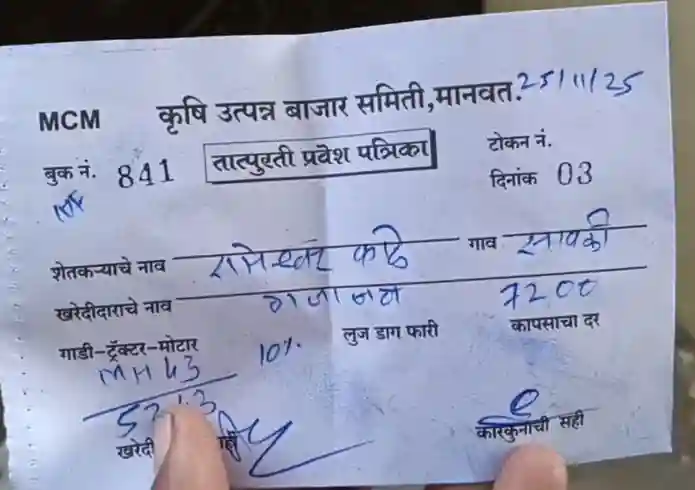 MCM कृषि उत्पन्न बाजार समिती,मानवत. 25/11/25
बुक नं. 841 तात्पुरती प्रवेश पत्रिका टोकन नं.
दिनांक 03
शेतकऱ्याचे नाव रामेश्वर काळे गाव सावळी
खरेदीदाराचे नाव गजानन 7200
गाडी-ट्रॅक्टर-मोटार 10% लुज डाग फारी कापसाचा दर
MH43
खरेदी
कारकुनाची सही